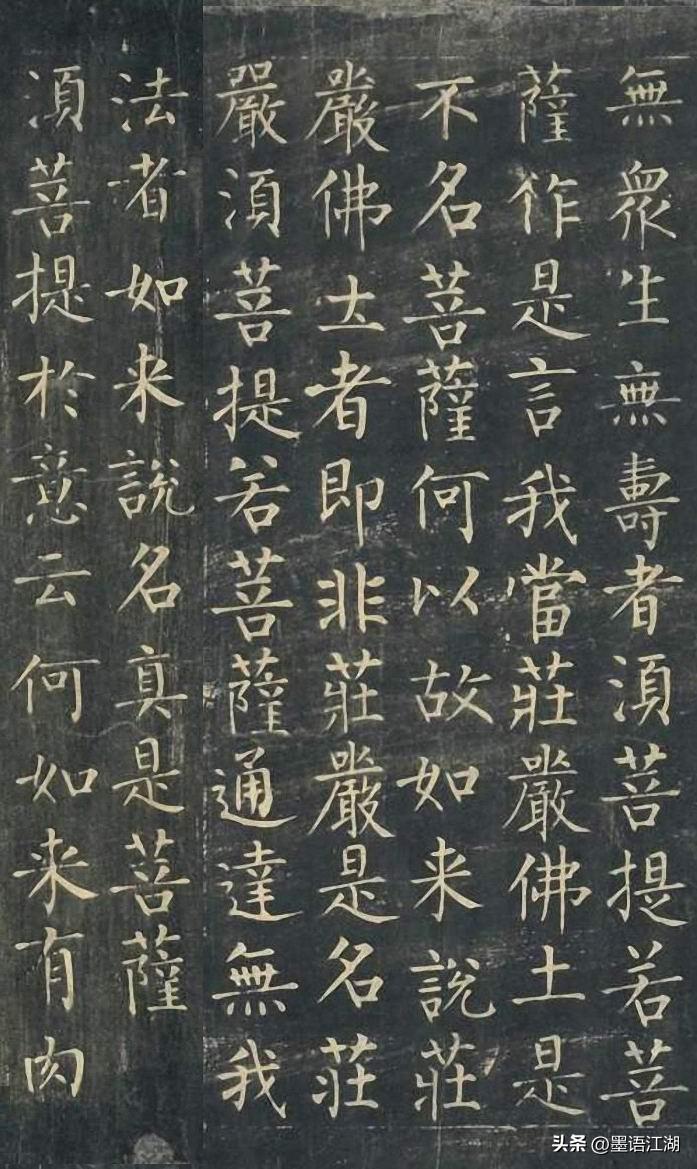 無眾生無壽者須菩提若菩
薩作是言我當莊嚴佛土是
不名菩薩何以故如来說莊
嚴佛土者即非莊嚴是名莊
嚴須菩提若菩薩通達無我
法者如来說名真是菩薩
須菩提於意云何如来有肉
头条 @墨语江湖